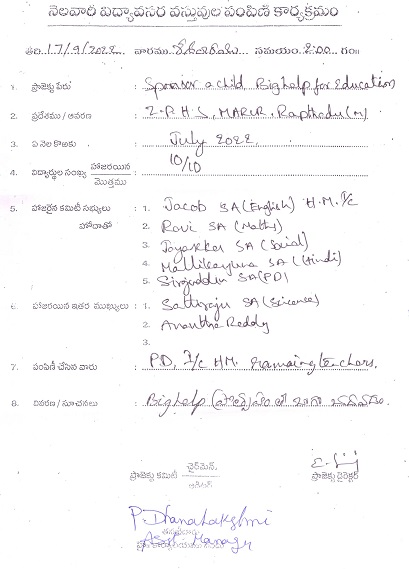 నెలవారీ విద్యావసర వస్తువుల పంపిణీ కార్యక్రమం
తేది. 17/9/2022 వారము శనివారము సమయం. 2:00 గం॥
1. ప్రాజెక్టు పేరు : Sponsor a child Bighelp for Education
2. ప్రదేశము / ఆవరణ : Z.P.H.S, MARUR, Rapthadu (M)
3. ఏ నెల కొఱకు : July 2022.
4. విద్యార్థుల సంఖ్య హాజరయిన / మొత్తము : 10/10
5. హాజరైన కమిటీ సభ్యులు : 1. Jacob SA (English) H.M. I/c
హోదాతో 2. Ravi SA (Maths)
3. Jayasekhar SA (Social)
4. Mallikarjuna SA (Hindi)
5. Sirajuddin SA (PD)
6. హాజరయిన ఇతర ముఖ్యులు : 1. Sattiraju SA (Science)
2. Anantha Reddy
3.
7. పంపిణీ చేసిన వారు : P.D, I/c HM. remaing teachers.
8. వివరణ / సూచనలు : Bighelp
ఛైర్మెన్.
ప్రాజెక్టు కమిటీ
ఆడిటర్
ప్రాజెక్టు డైరెక్టర్
P. Dhanalakshmi
Asst. Manager